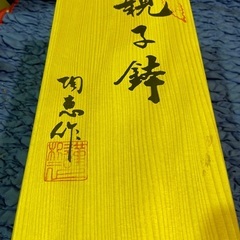 親子鉢
陶志作